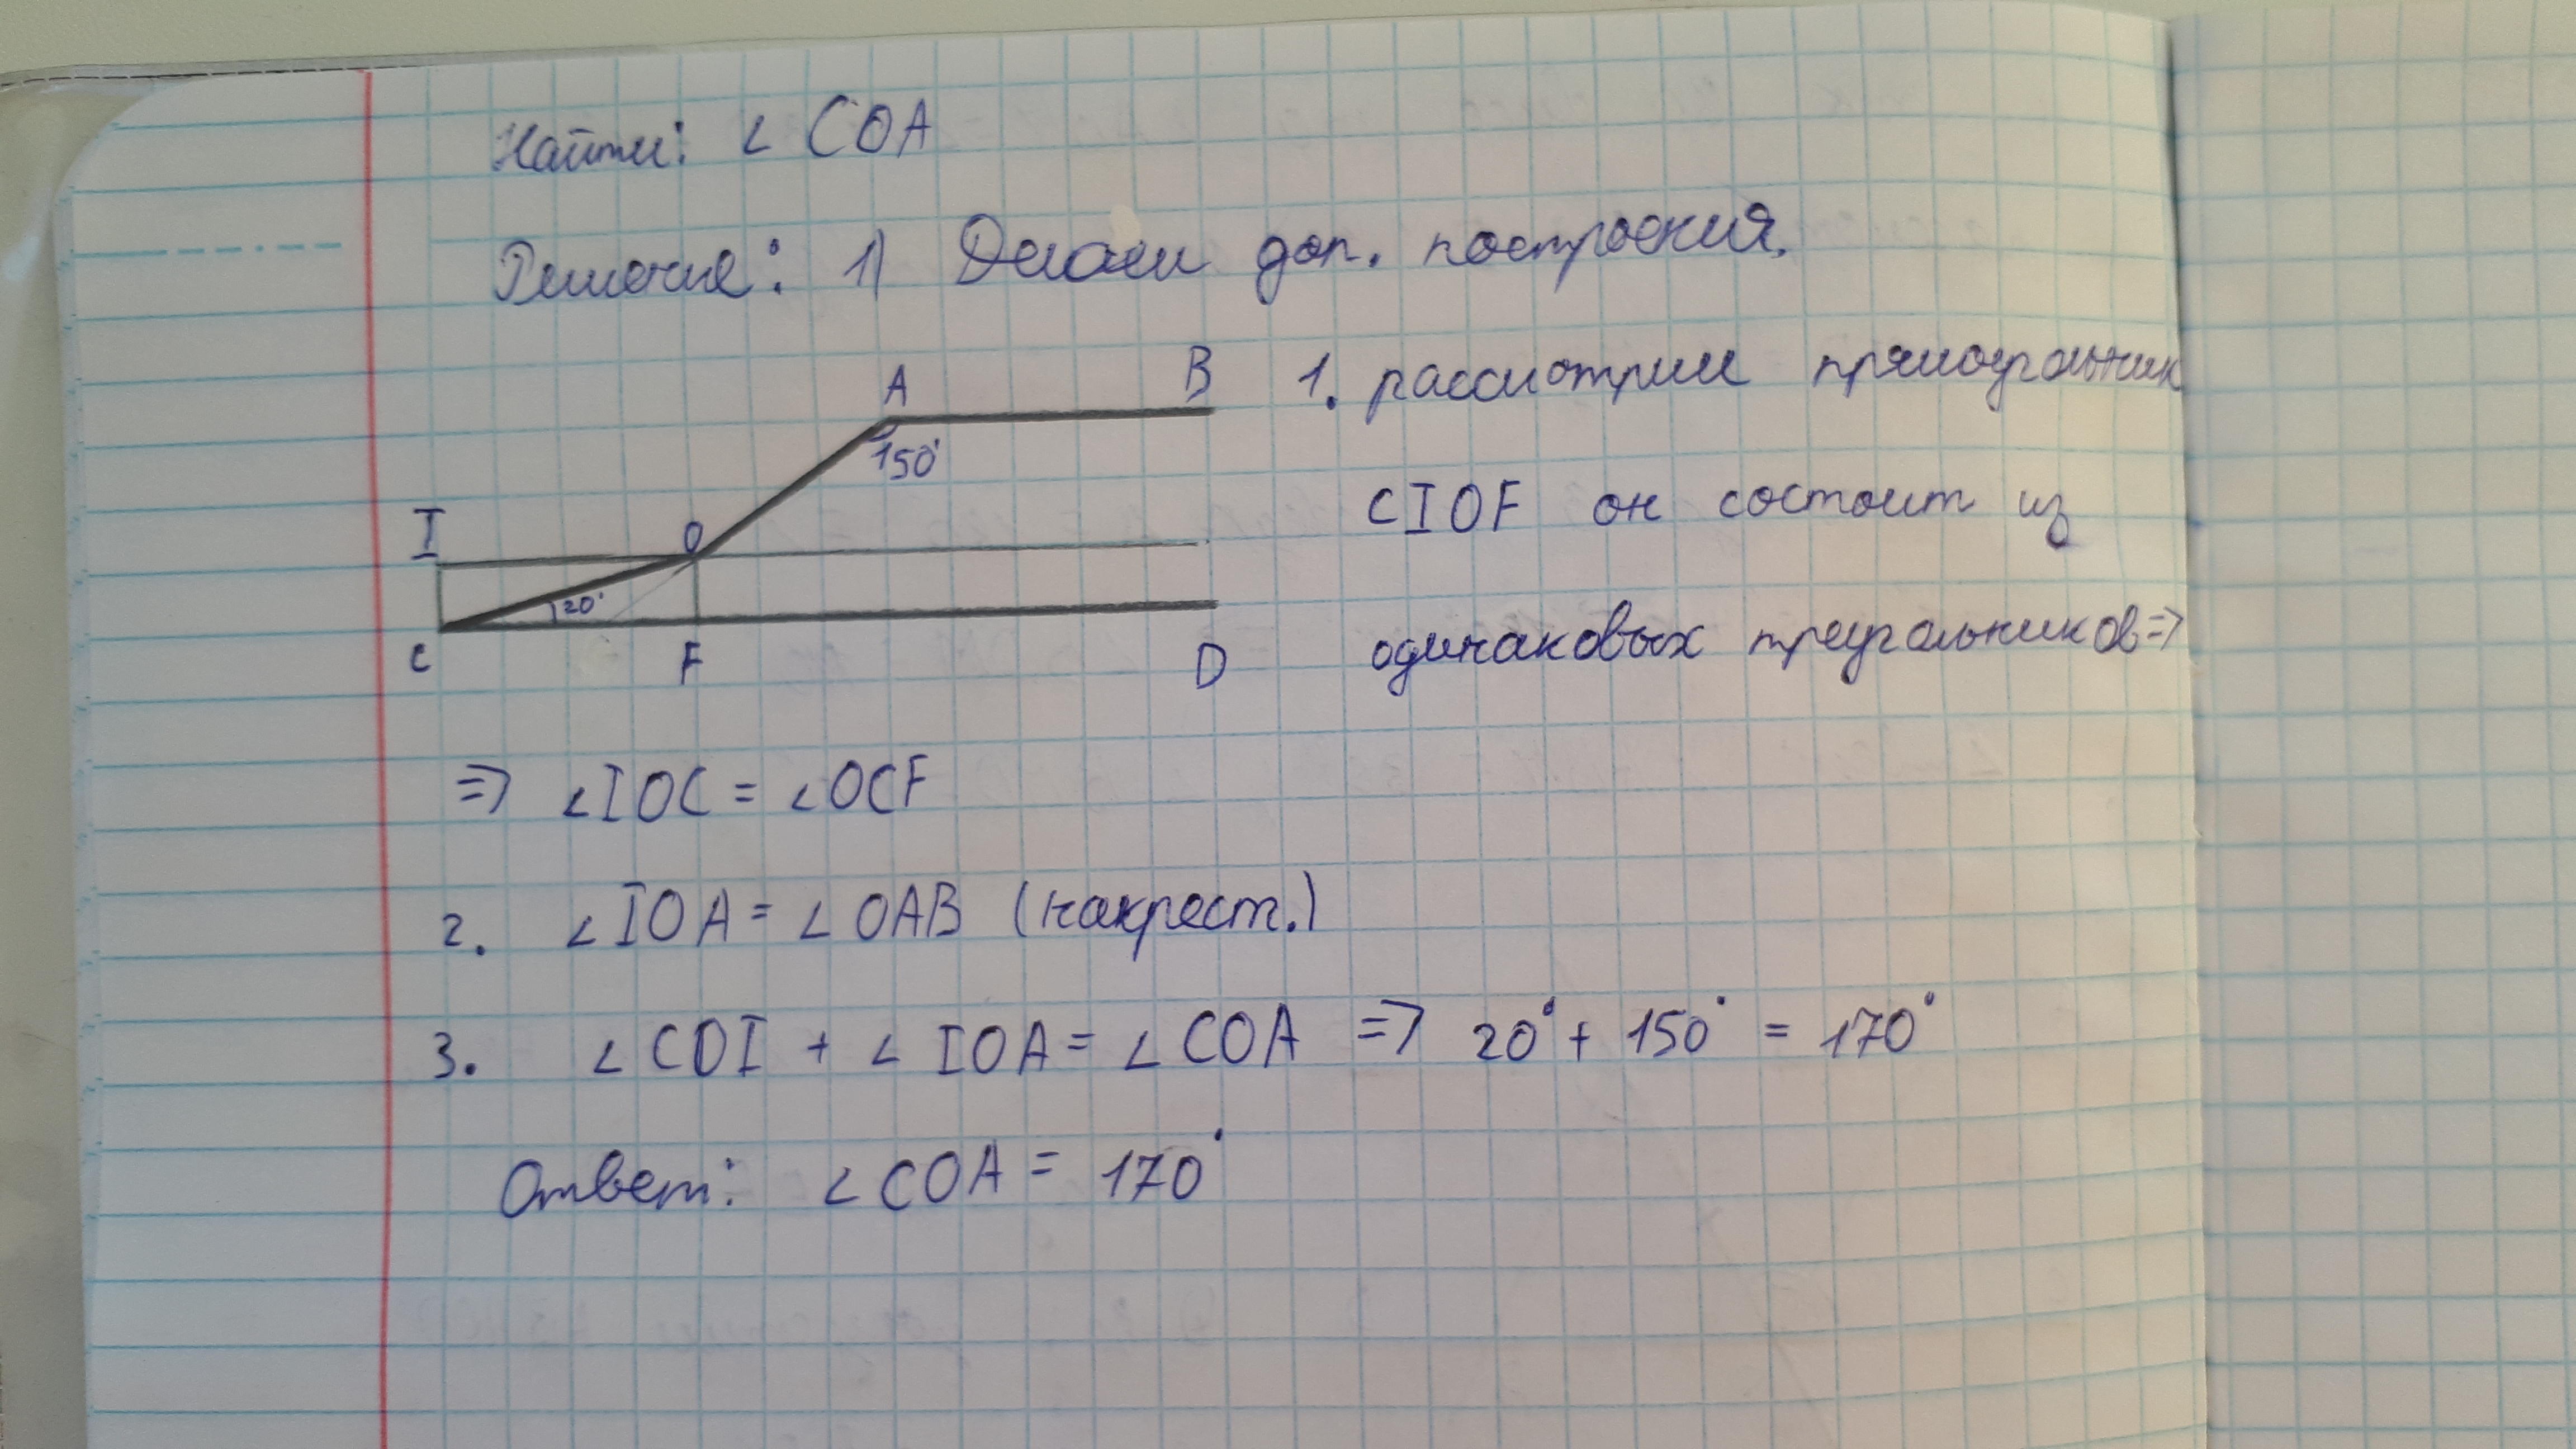 Найти: ∠ COA
Решение: 1) Делаем доп. построения.
A B
150°
I O
20°
C F D
1. рассмотрим прямоугольник
CIOF он состоит из
одинаковых треугольников =>
=> ∠IOC = ∠OCF
2. ∠IOA = ∠OAB (накрест.)
3. ∠COI + ∠IOA = ∠COA => 20° + 150° = 170°
Ответ: ∠COA = 170°